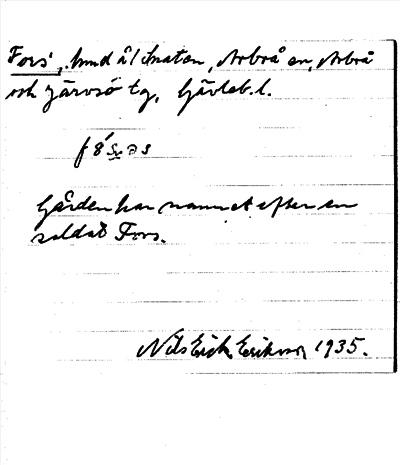 Fors, hmd å l Arbrå sn, Arbrå
och Järvsö tg, Gävleb. l.
Gården har namnet efter en
soldat Fors.
Nils Erik Eriksson 1935.